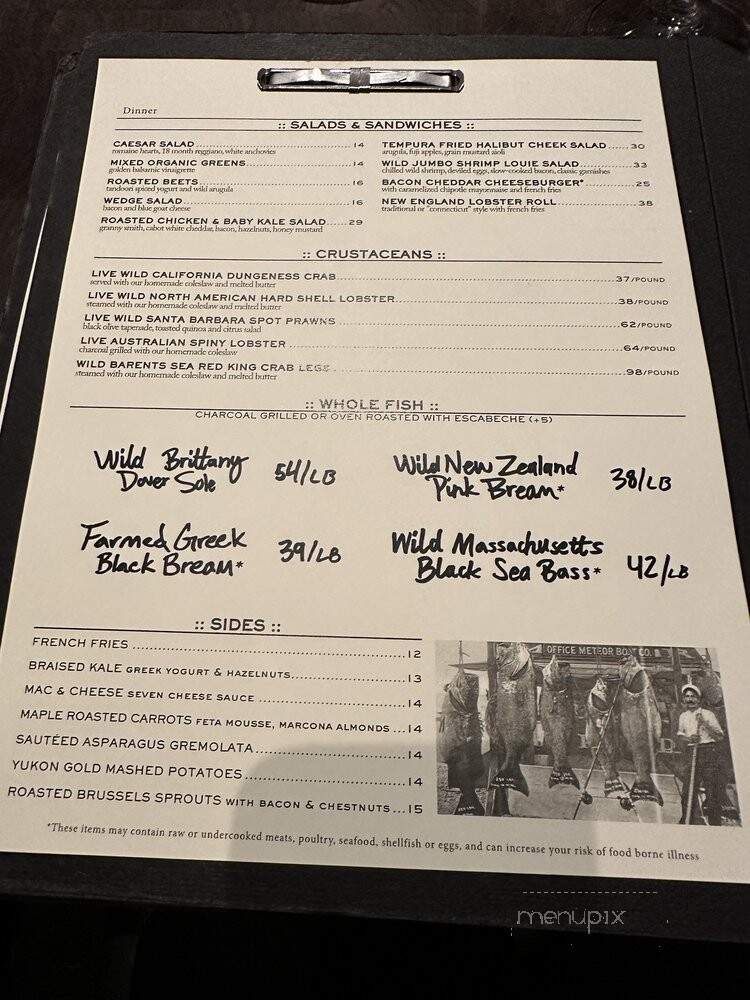 Dinner
:: SALADS & SANDWICHES ::
CAESAR SALAD ..... 14
romaine hearts, 18 month reggiano, white anchovies
MIXED ORGANIC GREENS ..... 14
golden balsamic vinaigrette
ROASTED BEETS ..... 16
tandoori spiced yogurt and wild arugula
WEDGE SALAD ..... 16
bacon and blue goat cheese
ROASTED CHICKEN & BABY KALE SALAD ..... 29
granny smith, cabot white cheddar, bacon, hazelnuts, honey mustard
TEMPURA FRIED HALIBUT CHEEK SALAD ..... 30
arugula, fuji apples, grain mustard aioli
WILD JUMBO SHRIMP LOUIE SALAD ..... 33
chilled wild shrimp, deviled eggs, slow-cooked bacon, classic garnishes
BACON CHEDDAR CHEESEBURGER* ..... 25
with caramelized chipotle mayonnaise and french fries
NEW ENGLAND LOBSTER ROLL ..... 38
traditional or "connecticut" style with french fries
:: CRUSTACEANS ::
LIVE WILD CALIFORNIA DUNGENESS CRAB ..... 37/POUND
served with our homemade coleslaw and melted butter
LIVE WILD NORTH AMERICAN HARD SHELL LOBSTER ..... 38/POUND
steamed with our homemade coleslaw and melted butter
LIVE WILD SANTA BARBARA SPOT PRAWNS ..... 62/POUND
black olive tapenade, toasted quinoa and citrus salad
LIVE AUSTRALIAN SPINY LOBSTER ..... 64/POUND
charcoal grilled with our homemade coleslaw
WILD BARENTS SEA RED KING CRAB LEGS ..... 98/POUND
steamed with our homemade coleslaw and melted butter
:: WHOLE FISH ::
CHARCOAL GRILLED OR OVEN ROASTED WITH ESCABECHE (+5)
Wild Brittany
Dover Sole 54/LB
Wild New Zealand
Pink Bream* 38/LB
Farmed Greek
Black Bream* 39/LB
Wild Massachusetts
Black Sea Bass* 42/LB
:: SIDES ::
FRENCH FRIES ..... 12
BRAISED KALE GREEK YOGURT & HAZELNUTS ..... 13
MAC & CHEESE SEVEN CHEESE SAUCE ..... 14
MAPLE ROASTED CARROTS FETA MOUSSE, MARCONA ALMONDS ... 14
SAUTÉED ASPARAGUS GREMOLATA ..... 14
YUKON GOLD MASHED POTATOES ..... 14
ROASTED BRUSSELS SPROUTS WITH BACON & CHESTNUTS ... 15
OFFICE METEOR BOAT CO.
*These items may contain raw or undercooked meats, poultry, seafood, shellfish or eggs, and can increase your risk of food borne illness
menupix